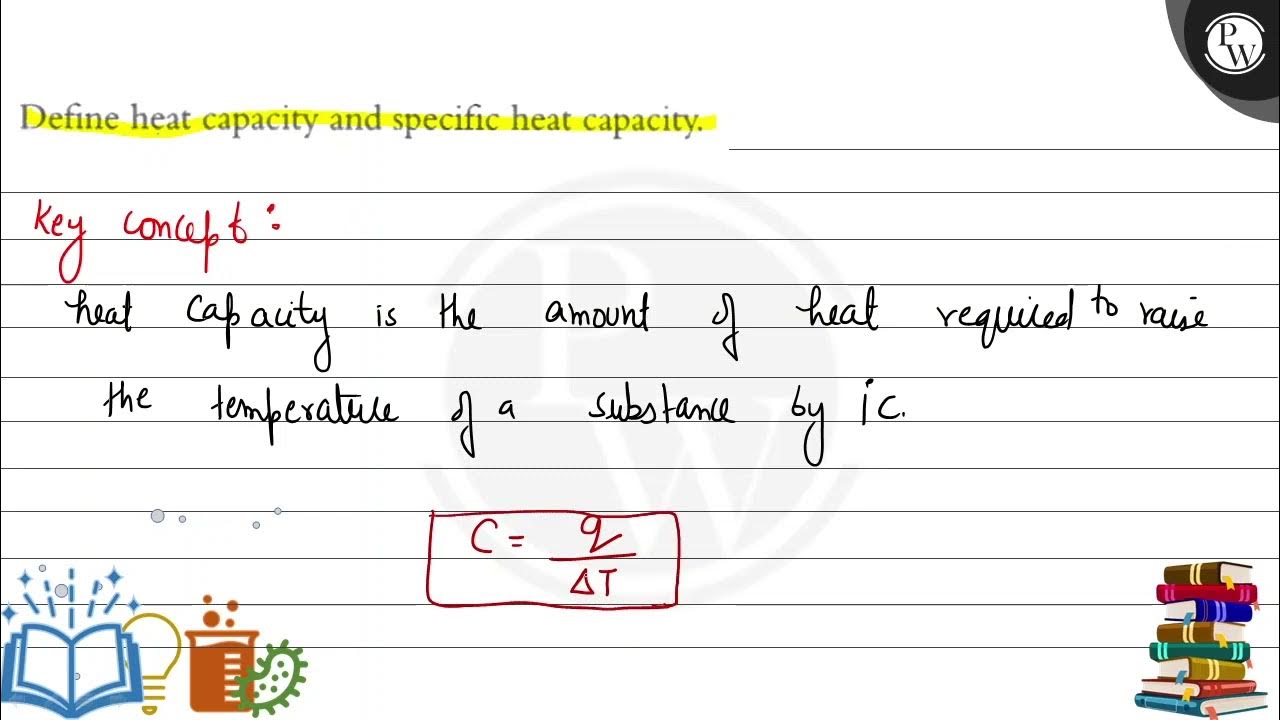 P
W
Define heat capacity and specific heat capacity.
Key concept:
heat capacity is the amount of heat required to raise
the temperature of a substance by 1°C.
C = q
ΔT
PW